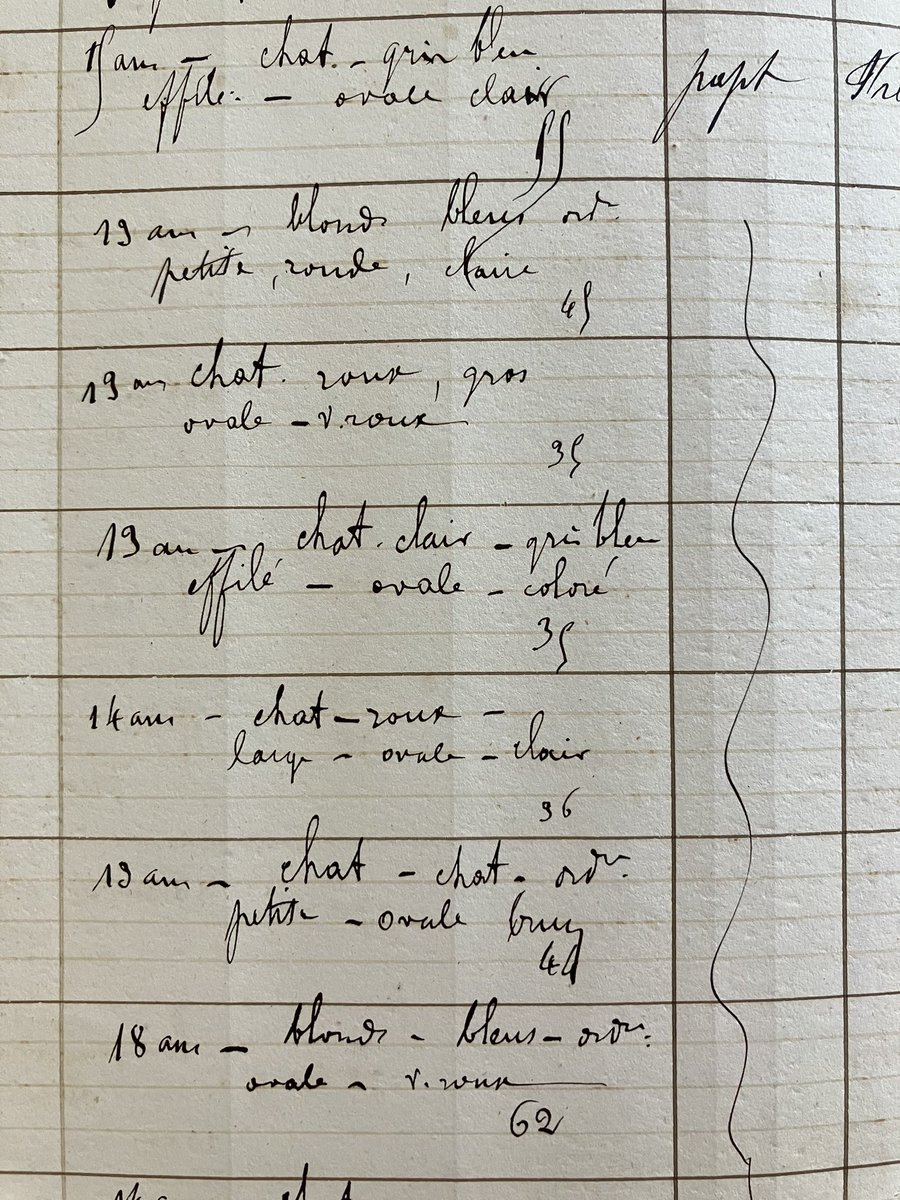 15 ans - chat. - gris bleu
effilé - ovale clair
papt
55
19 ans - blonds bleus ordre
petite, ronde, claire
45
19 ans chat. roux, gros
ovale - v. roux
35
19 ans - chat. clair - gris bleu
effilé - ovale - coloré
35
14 ans - chat - roux -
large - ovale - clair
36
19 ans - chat - chat - ordre
petite - ovale brun
18 ans - blonds - bleus - ordre
ovale - v. roux
62